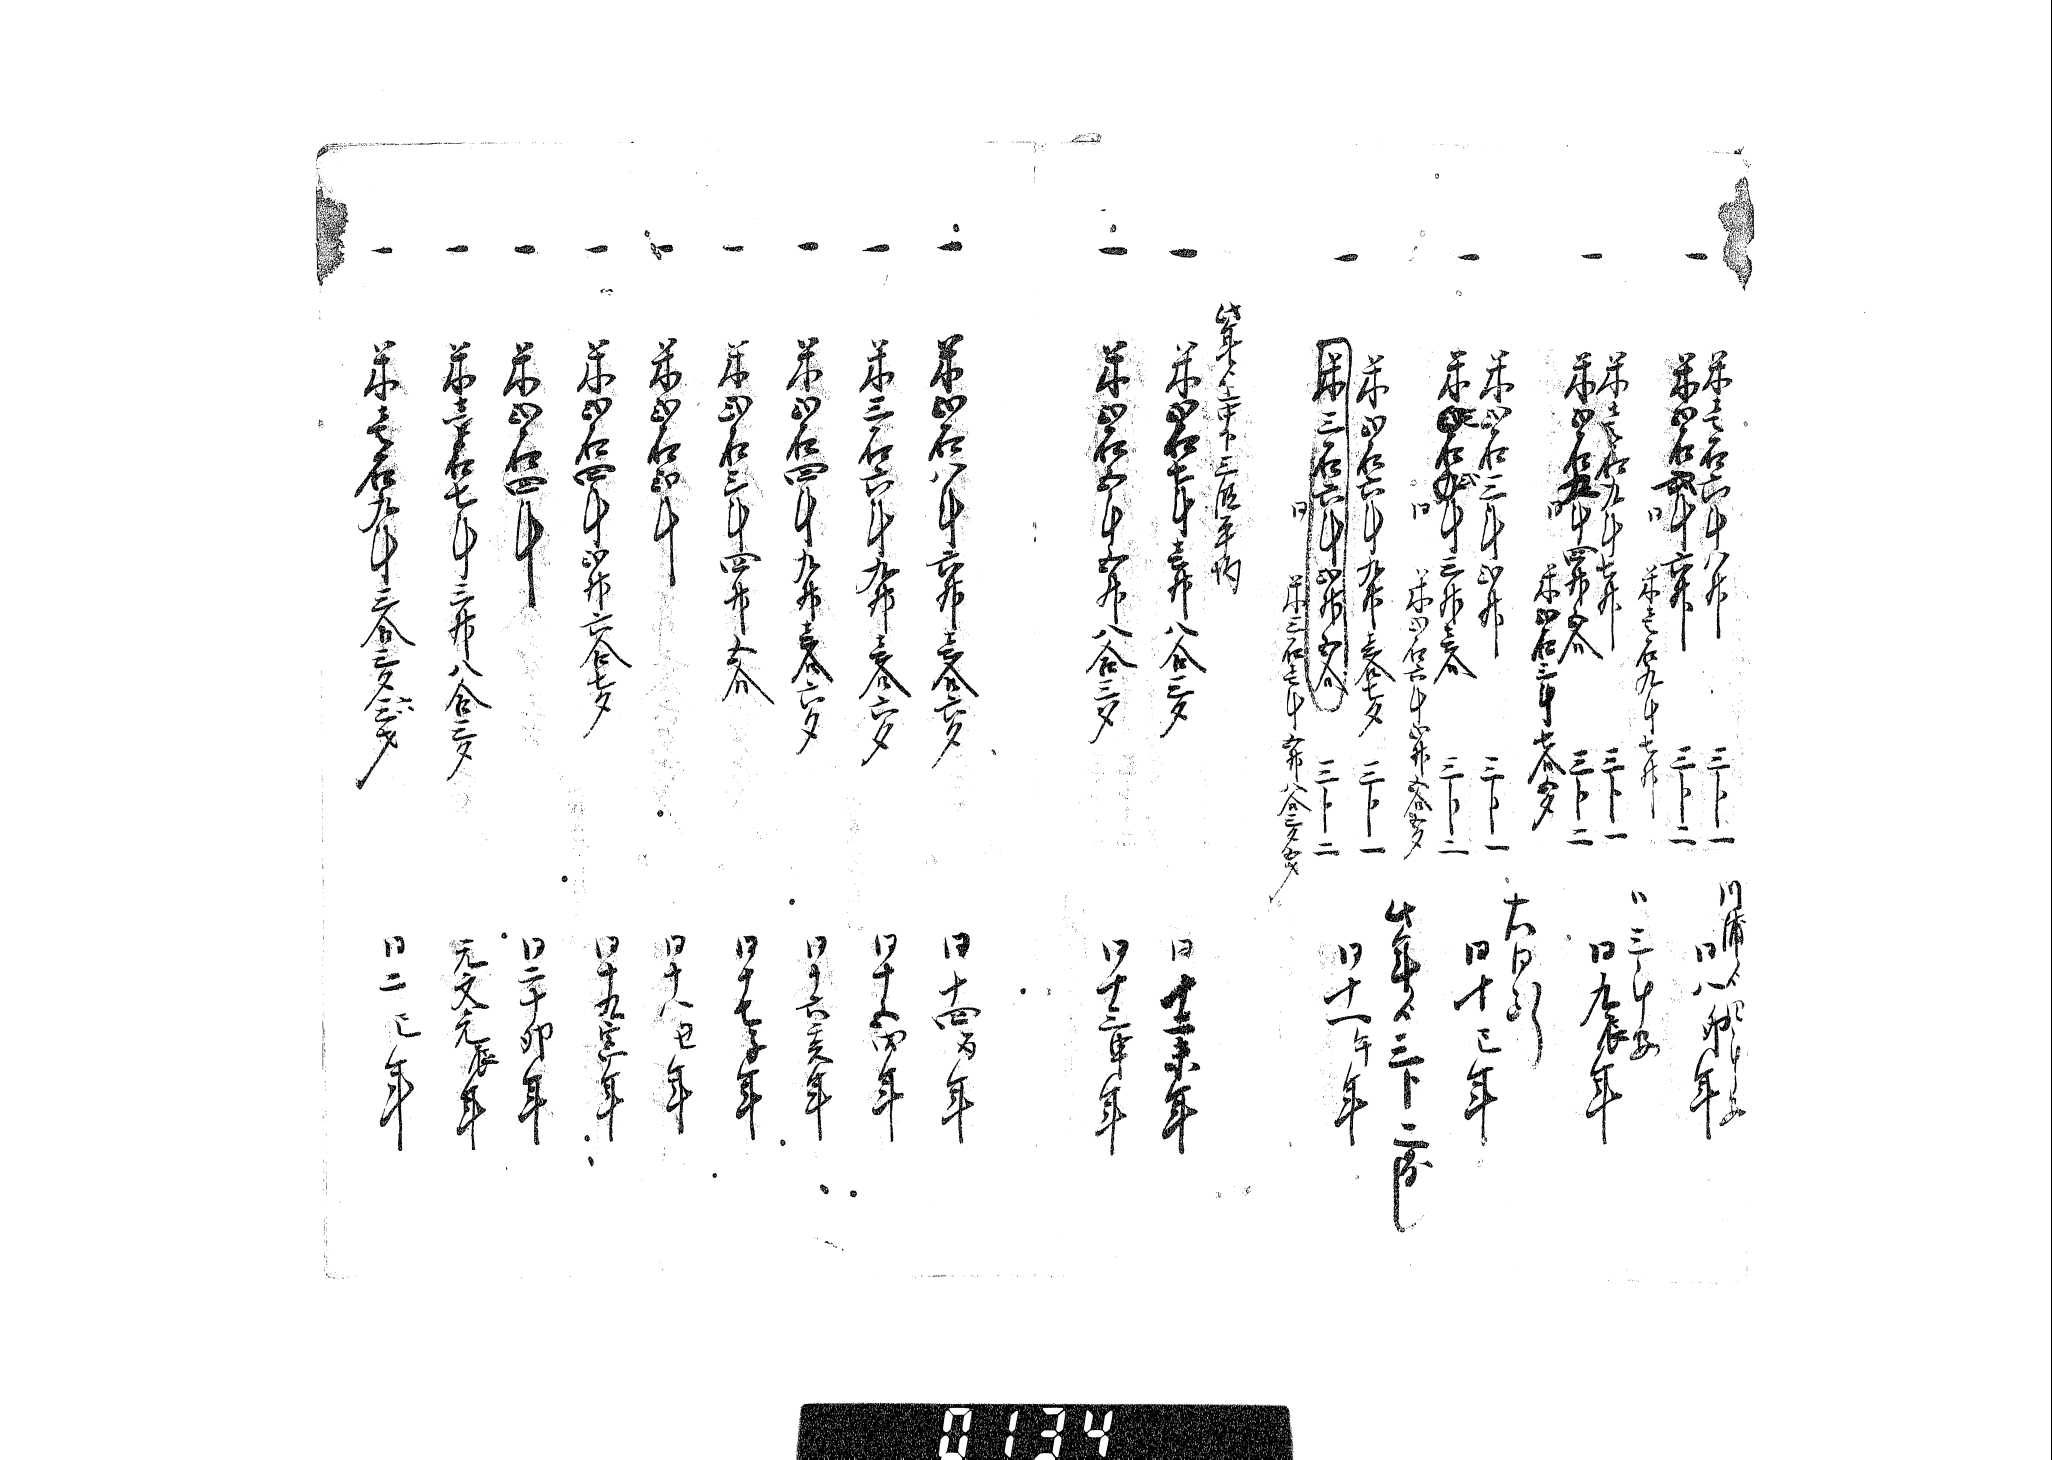 一
米壱石六斗八升 三ト一
米四石四斗六升 三ト二
同八卯年
同 米壱石九斗七升
一
米壱石九斗七升 三ト一
米四石九斗四升五合 三ト二
同九辰年
同 米四石三斗七合四夕
一
米四石二斗四升 三ト一
三ト二
同十巳年
同 米四石六斗四升五合五夕
此年ゟ三ト二
一
米四石六斗九升壱合七夕 三ト一
米三石六斗四升五合 三ト二
同十一午年
同 米三石七斗五升八合三夕五才
此年ゟ上中下三段平均
一 米四石七斗壱升八合三夕 同十二未年
一 米四石五斗五升八合三夕 同十三申年
一 米四石八斗六升壱合六夕 同十四酉年
一 米三石六斗九升壱合六夕 同十五戌年
一 米四石四斗九升壱合六夕 同十六亥年
一 米四石三斗四升五合 同十七子年
一 米四石四斗 同十八丑年
一 米四石四斗四升六合七夕 同十九寅年
一 米四石四斗 同二十卯年
一 米壱石七斗三升八合三夕 元文元辰年
一 米壱石九斗三合三夕三才 同二巳年
0134